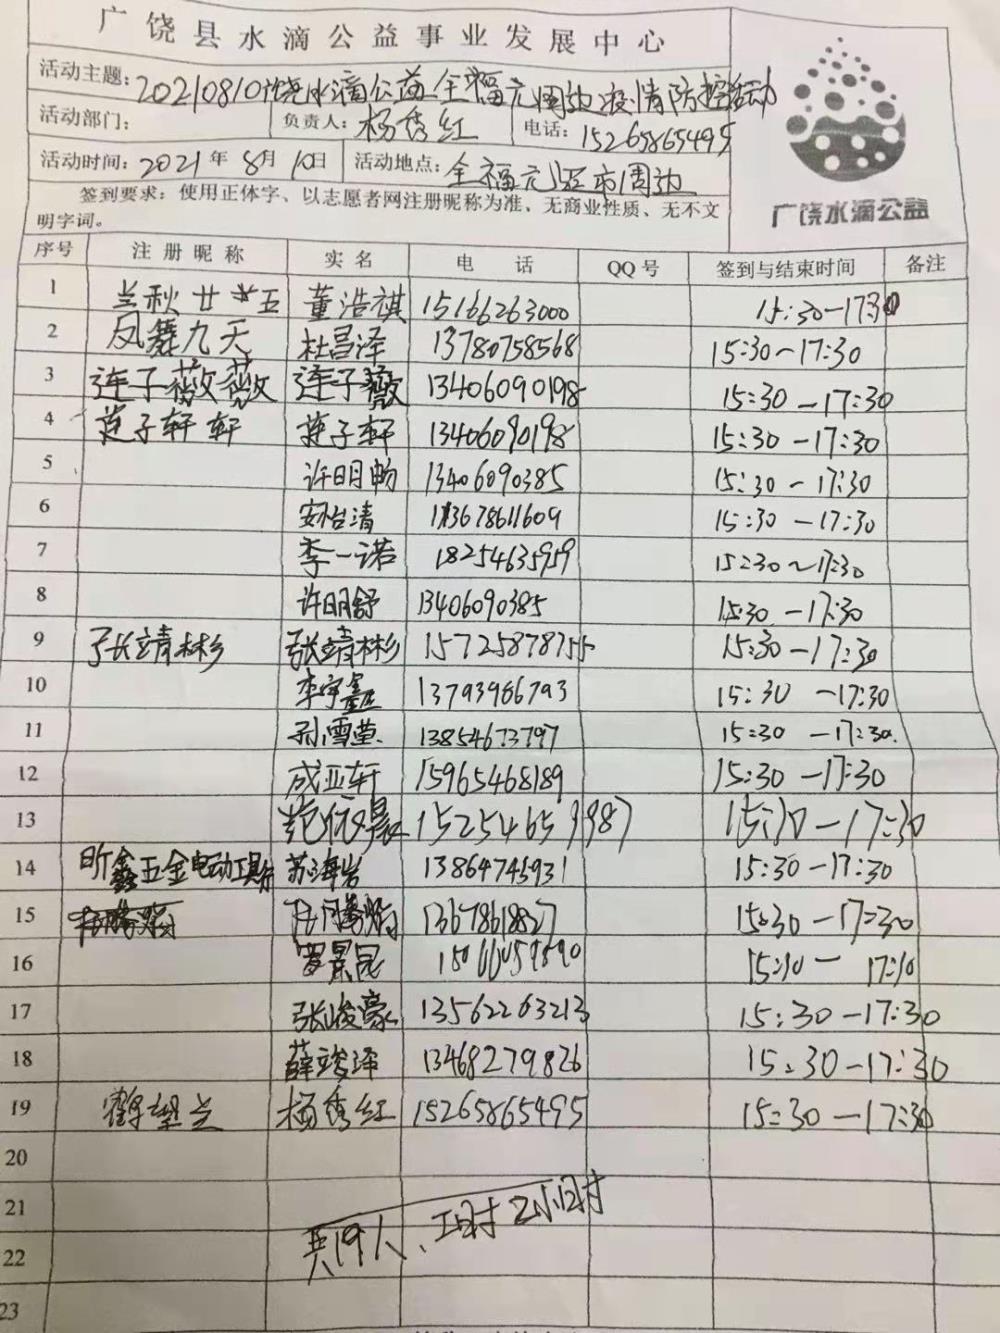 广饶县水滴公益事业发展中心
活动主题：20210810饶水滴公益全福元周边疫情防控活动
活动部门： 负责人：杨秀红 电话：15265865495
活动时间：2021年8月10日 活动地点：全福元超市周边
签到要求：使用正体字、以志愿者网注册昵称为准、无商业性质、无不文
明字词。
广饶水滴公益
序号 注册昵称 实名 电话 QQ号 签到与结束时间 备注
1 兰秋廿五 董浩祺 15166263000 15:30-17:30
2 凤舞九天 杜昌泽 13780758568 15:30～17:30
3 莲子薇薇 莲子薇 13406090198 15:30-17:30
4 莲子轩轩 莲子轩 13406090198 15:30-17:30
5 许明畅 13406090385 15:30-17:30
6 清 13678611609 15:30-17:30
7 李一诺 18254635959 15:30～17:30
8 许明舒 13406090385 15:30-17:30
9 张靖彬 张靖彬 15725878755 15:30-17:30
10 李宇鑫 13793966793 15:30-17:30
11 孙雪莹 13854673797 15:30-17:30
12 成亚轩 15965468189 15:30-17:30
13 15254659987 15:30-17:30
14 昕鑫五金电动工具 苏海岩 13864745931 15:30-17:30
15 13678618827 15:30-17:30
16 贾景昆 17:30
17 张峻豪 13562263213 15:30-17:30
18 薛竣泽 13468279826 15:30-17:30
19 鹤望兰 杨秀红 15265865495 15:30-17:30
20
21
共19人、工时2小时
22
23